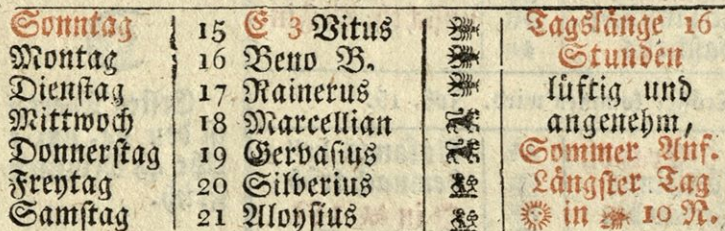 Sonntag 15 E 3 Vitus Tagslänge 16
Montag 16 Beno B. Stunden
Dienſtag 17 Rainerus lüftig und
Mittwoch 18 Marcellian angenehm,
Donnerſtag 19 Gervaſius Sommer Anf.
Freytag 20 Silverius Längſter Tag
Samſtag 21 Aloyſius ☼ in ♋ 10 N.